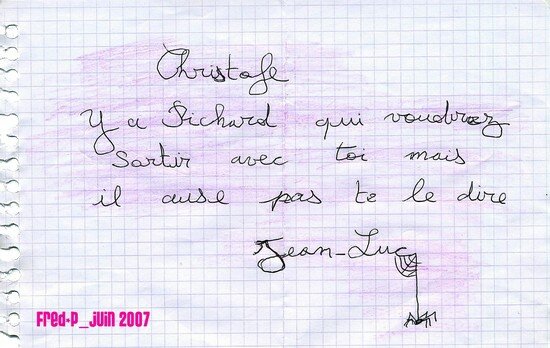 Christofe
Y a Richard qui voudrez
Sortir avec toi mais
il ause pas te le dire
Jean-Luc
FRED-P_JUIN 2007